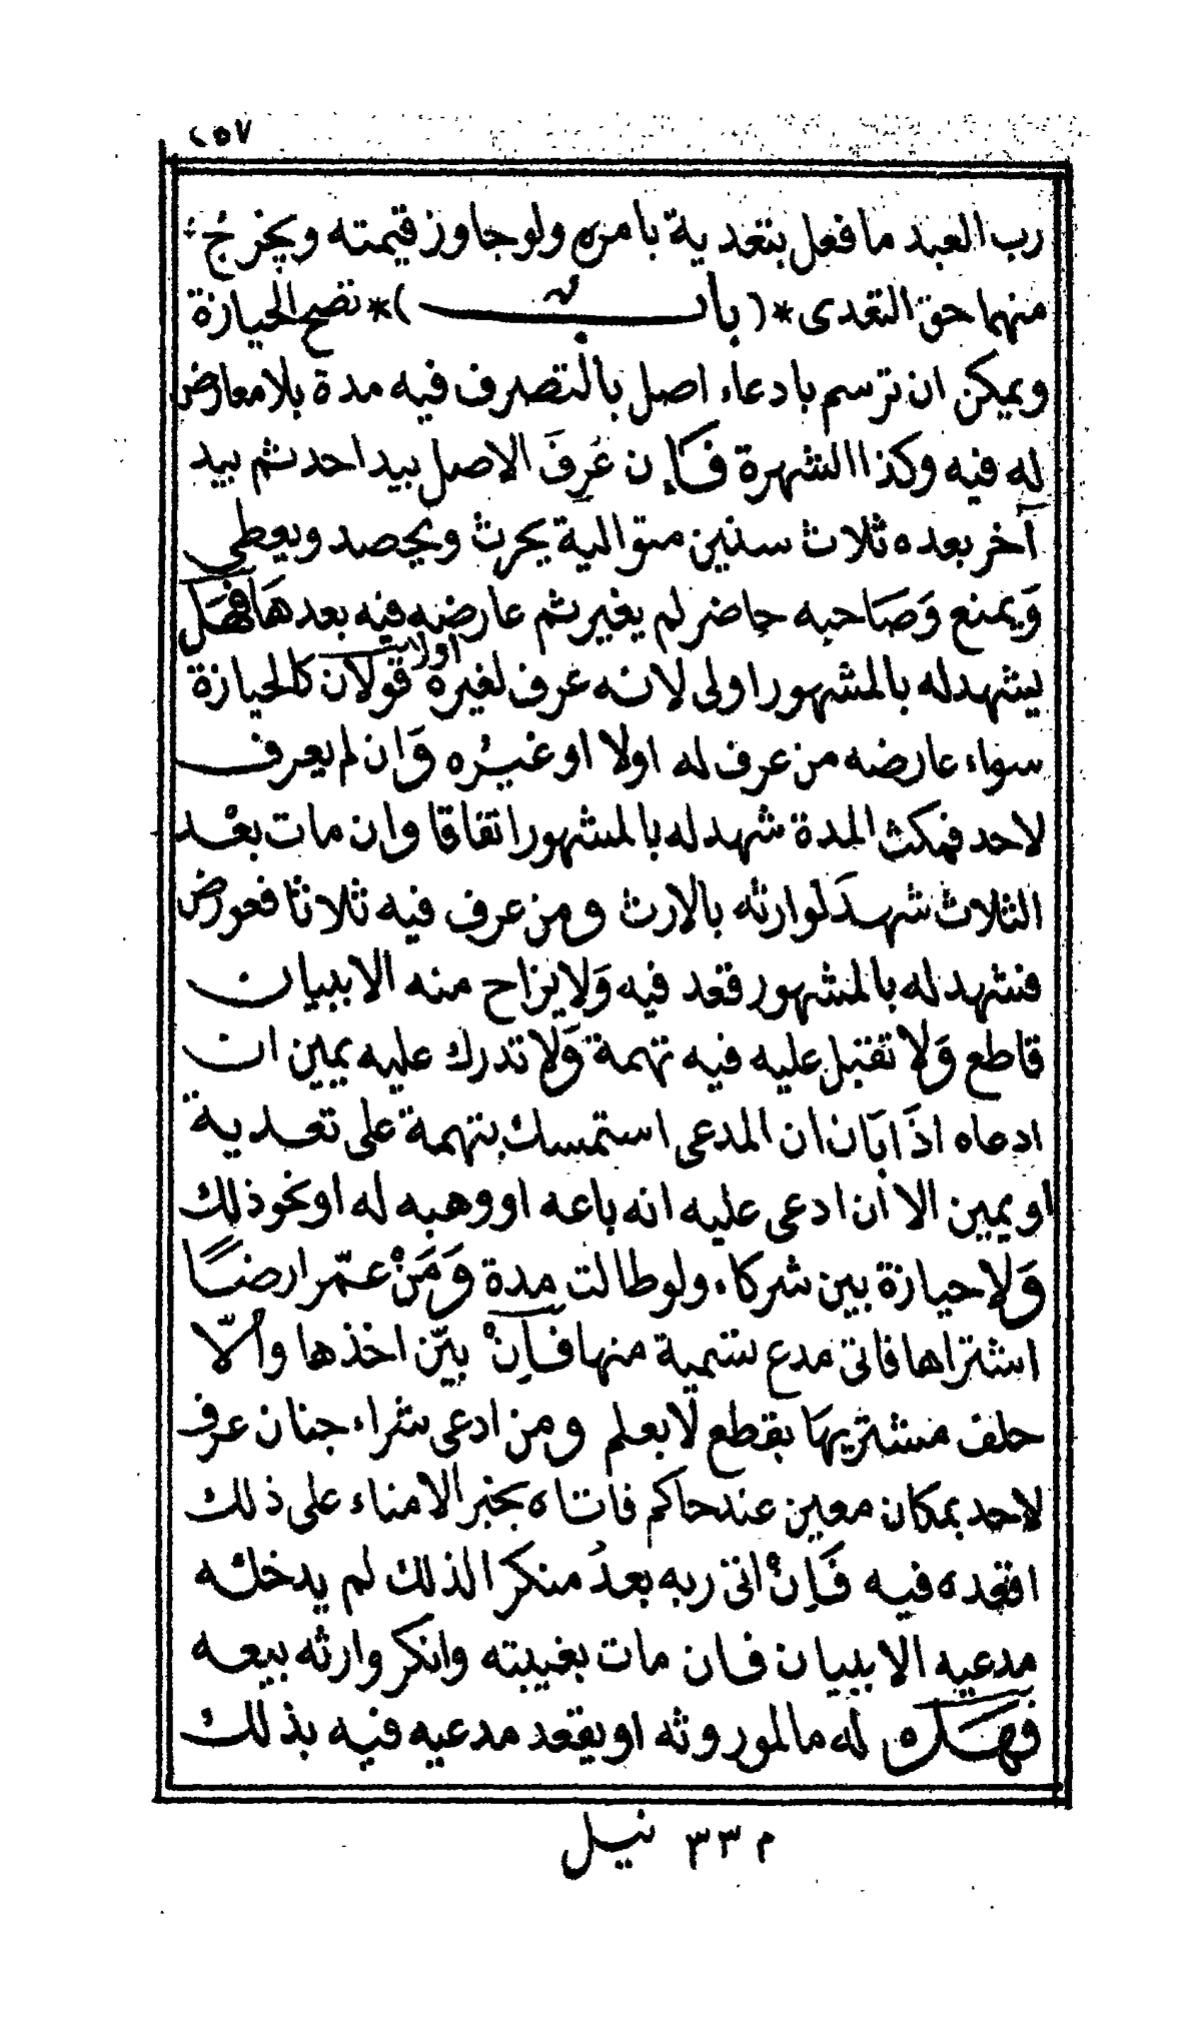 ٢٥٧
رب العبد ما فعل بتعدية بامره ولو جاوز قيمته ويخرج ء
منهما حق التعدى *( باب )* تصح الحيازة
ويمكن ان ترسم بادعاء اصل بالتصرف فيه مدة بلا معارض
له فيه وكذا الشهرة فَإن عُرِفَ الاصل بيد احد ثم بيد
آخر بعده ثلاث سنين متوالية يحرث ويحصد ويعطى
وَيمنع وَصَاحبه حاضر لم يغير ثم عارضه فيه بعدهَا فَهَل
يشهد له بالمشهور اولى لانه عرف لغيره اولا قولان كالحيازة
سواء عارضه من عرف له اولا او غيرُه وَان لم يعرف
لاحد فمكث المدة شهد له بالمشهور اتفاقا وان مات بعْد
الثلاث شهدَ لوارثه بالارث ومن عرف فيه ثلاثا فعورض
فشهد له بالمشهور قعد فيه وَلا يزاح منه الا ببيان
قاطع وَلا تقبل عليه فيه تهمة وَلا تدرك عليه يمين ان
ادعاه اذَا ابَان ان المدعى استمسك بتهمة على تعدية
او يمين الا ان ادعى عليه انه باعه او وهبه له او نحو ذلك
وَلا حيازة بين شركاء ولو طالت مدة وَمَنْ عمّر ارضًا
اشتراها فاتى مدع تسمية منها فَاِنْ بيّن اخذها واُلّا
حلف مشتريهَا بقطع لا بعلم ومن ادعى شراء جنان عرف
لاحد بمكان معين عند حاكم فاتاه بخبر الامناء على ذلك
اقعده فيه فَاِنْ اتى ربه بعدُ منكرا لذلك لم يدخله
مدعيه الا ببيان فان مات بغيبته وانكر وارثه بيعه
فهَل له ما لموروثه او يقعد مدعيه فيه بذلك
م ٣٣ نيل